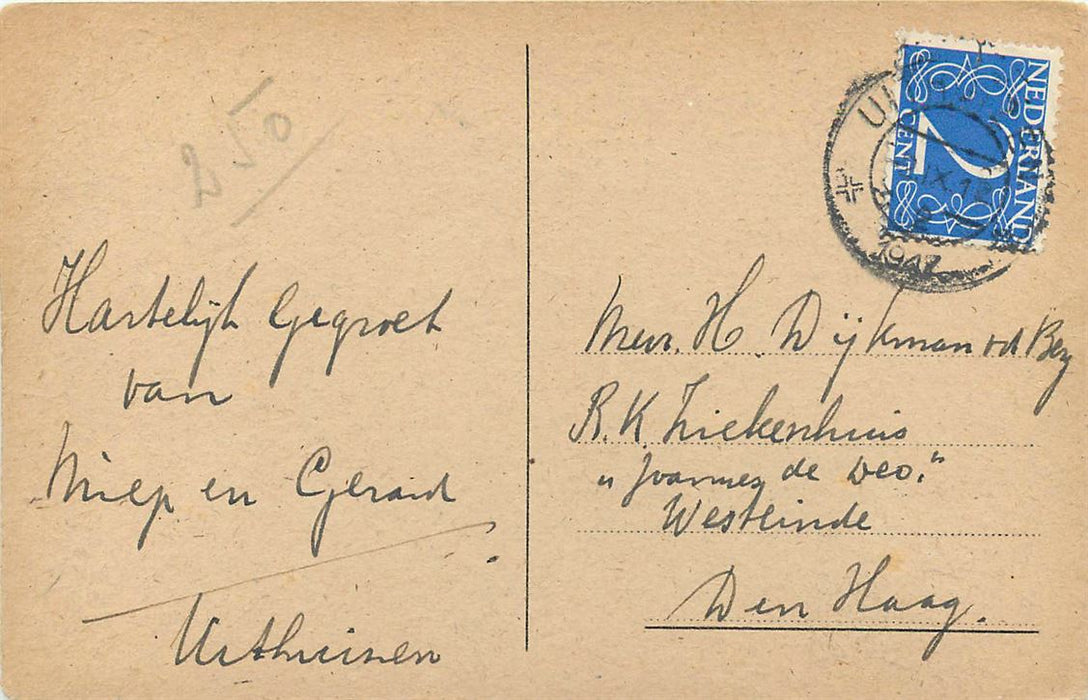 2 50
Hartelijk Gegroet
van
Miep en Gerard
Uithuizen
NEDERLAND
2
CENT
1947
Mevr. H. Dijkman vd Berg
R.K. Ziekenhuis
"Joannes de Deo."
Westeinde
Den Haag.